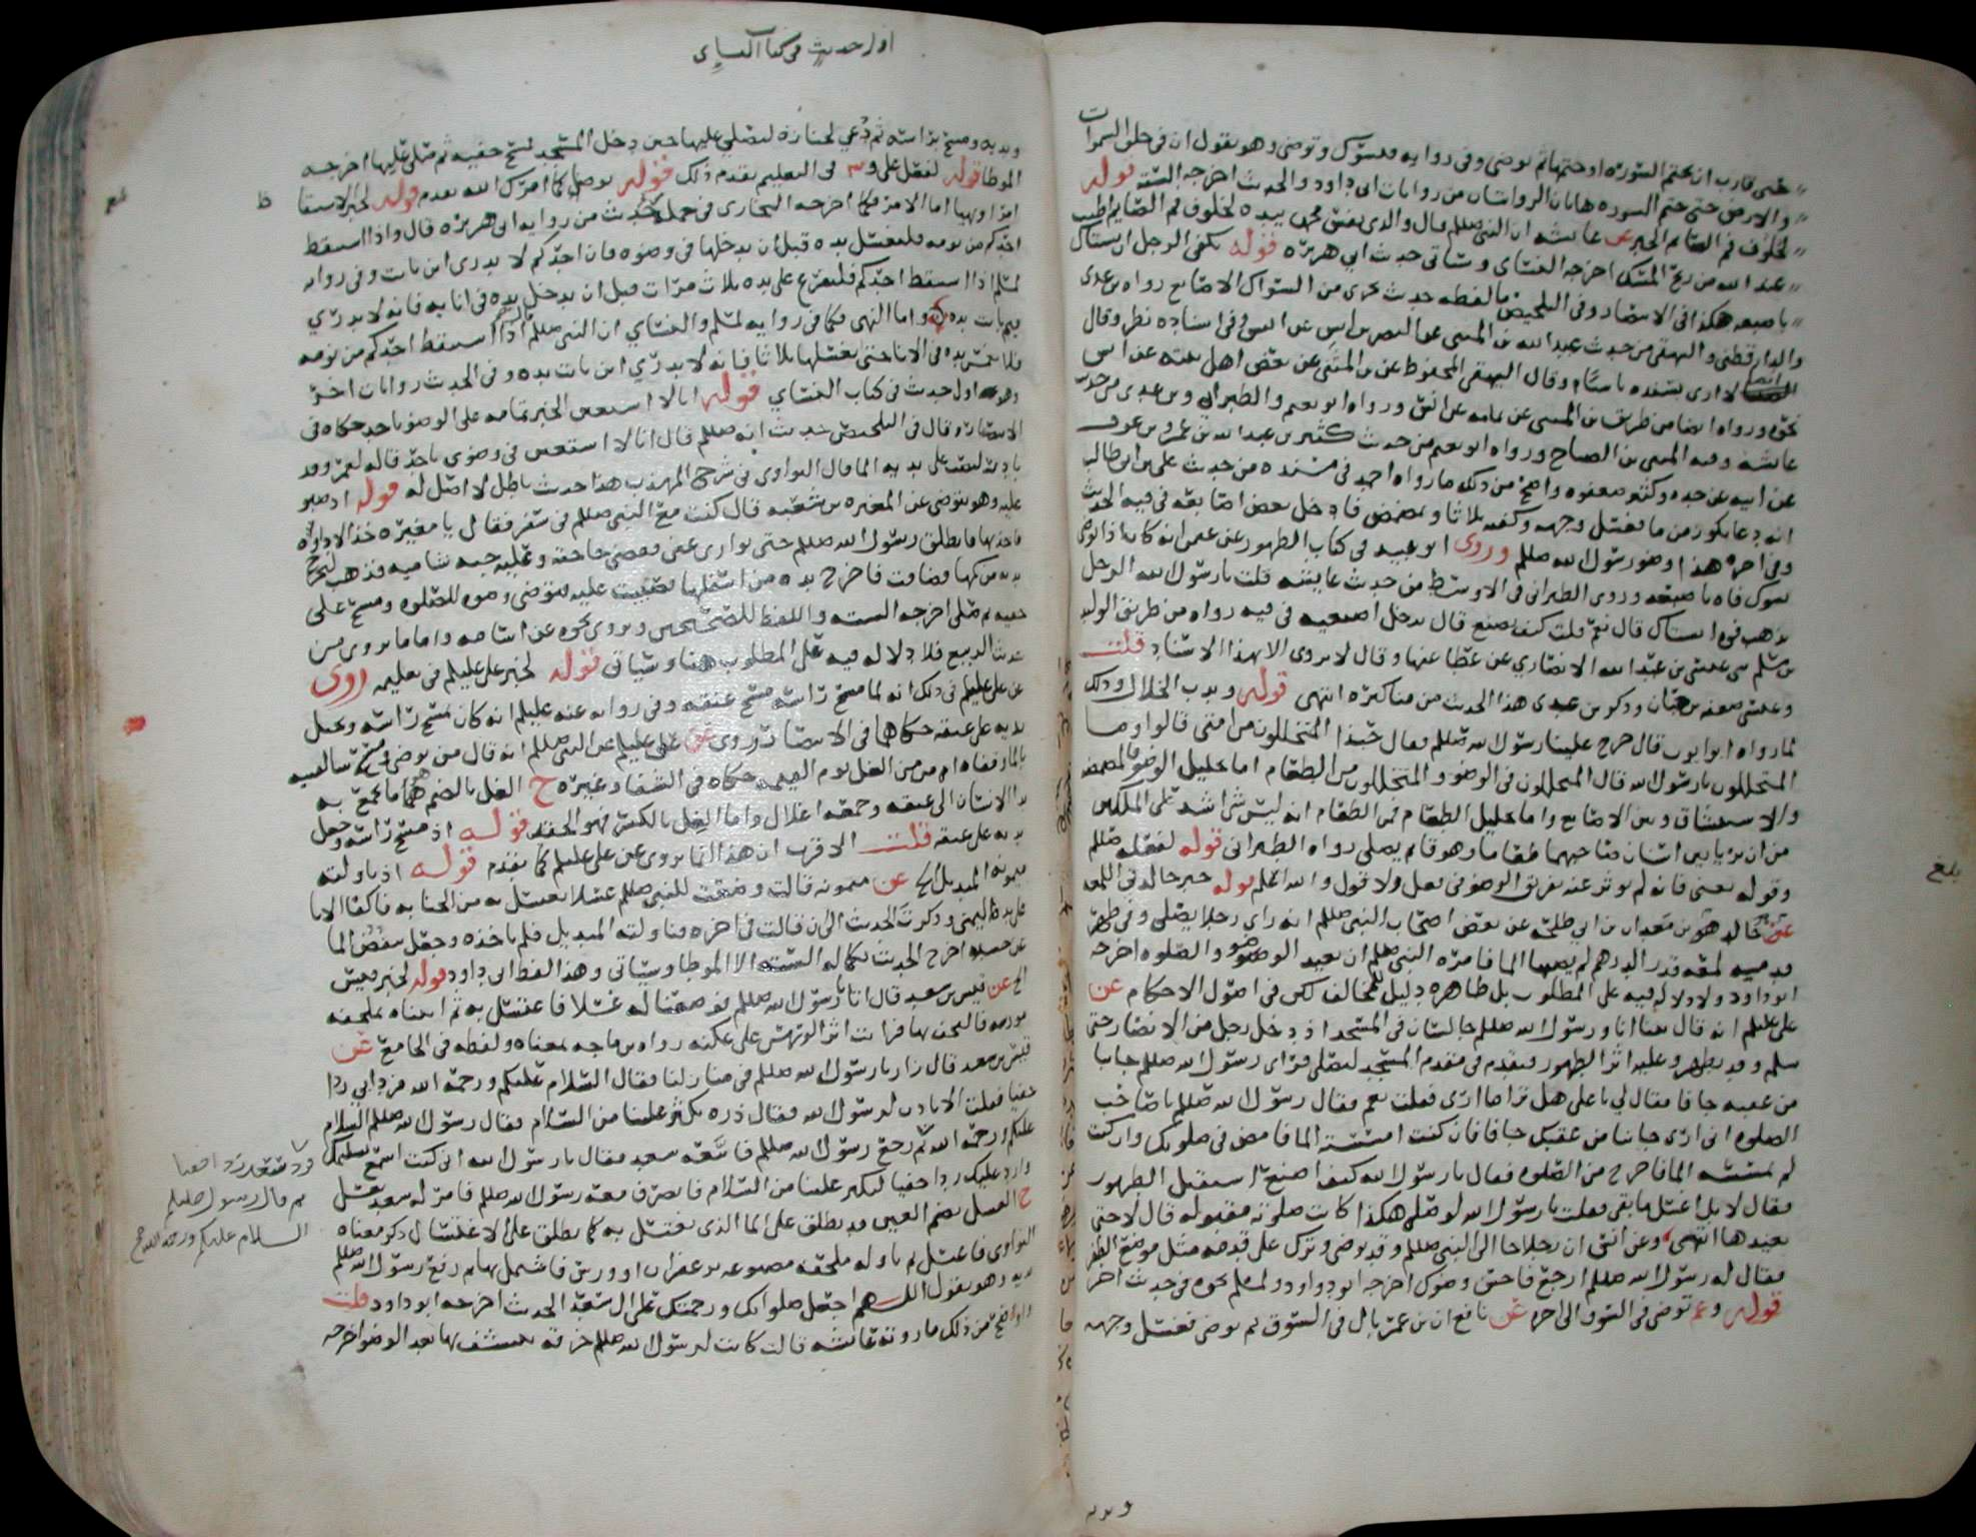 حتى قارب ان يختم السوره او ختمها ثم توضى وفي روايه فتسوك وتوضى وهو يقول ان في خلق السموات
والارض حتى ختم السوره هاتان الروايتان من روايات ابي داود والحديث اخرجه الستة قوله
لخلوف فم الصايم الخبر عن عايشه ان النبي صللم قال والذي نفس محمد بيده لخلوف فم الصايم اطيب
عند الله من ريح المسك اخرجه النساي وسياتي حديث ابي هريره قوله يكفي الرجل ان يستاك
باصبعه هكذا في الانتصار وفي التلخيص ما لفظه حديث يجزي من السواك الاصابع رواه بن عدي
والدارقطني والبيهقي من حديث عبد الله بن المثنى عن النضر بن انس عن انس وفي اسناده نظر وقال
لا ارى بسنده باسا وقال البيهقي المحفوظ عن بن المثنى عن بعض اهل بيته عن انس
نحوه ورواه ايضا من طريق بن المثنى عن ثمامه عن انس ورواه ابو نعيم والطبراني وبن عدي من حديث
عايشه وفيه المثنى بن الصباح ورواه ابو نعيم من حديث كثير بن عبد الله بن عمرو بن عوف
عن ابيه عن جده وكثير ضعفوه واصح من ذلك ما رواه احمد في مسنده من حديث علي بن ابي طالب
انه دعا بكوز من ما فغسل وجهه وكفيه ثلاثا وتمضمض فادخل بعض اصابعه في فيه الحديث
وفي اخره هذا وضو رسول الله صللم وروى ابو عبيد في كتاب الطهور عن عثمن انه كان اذا توضى
يسوك فاه باصبعه وروى الطبراني في الاوسط من حديث عايشه قلت يا رسول الله الرجل
يذهب فوه ايستاك قال نعم قلت كيف يصنع قال يدخل اصبعيه في فيه رواه من طريق الوليد
بن مسلم نا عيسى بن عبد الله الانصاري عن عطا عنها وقال لا يروى الا بهذا الاسناد قلت
وعيسى ضعفه بن حبان وذكر بن عدي هذا الحديث من مناكيره انتهى قوله وندب الخلال وذلك
لما رواه ابو ايوب قال خرج علينا رسول الله صللم فقال حبذا المتخللون من امتي قالوا وما
المتخللون يا رسول الله قال المتخللون في الوضو والمتخللون من الطعام اما تخليل الوضو فالمضمضه
والاستنشاق وبين الاصابع واما تخليل الطعام فمن الطعام انه ليس شي اشد على الملكين
من ان يريا بين اسنان صاحبهما طعاما وهو قايم يصلي رواه الطبراني قوله لفعله صللم
وقوله يعني فانه لم يوثر عنه تفريق الوضو في فعل ولا قول والله اعلم قوله خبر خالد في اللمعه
عن خالد هو بن معدان بن ابي طلحه عن بعض اصحاب النبي صللم انه راى رجلا يصلي وفي ظهر
قدميه لمعه قدر الدرهم لم يصبها الما فامره النبي صللم ان يعيد الوضو والصلوه اخرجه
ابو داود ولا دلاله فيه على المطلوب بل ظاهره دليل للمخالف لكن في اصول الاحكام عن
علي عليلم انه قال بينا انا ورسول الله صللم جالسان في المسجد اذ دخل رجل من الانصار حتى
سلم وقد تطهر وعليه اثر الطهور فتقدم في مقدم المسجد ليصلي فراى رسول الله صللم جانبا
من عقبه جافا فقال لي يا علي هل ترى ما ارى فقلت نعم فقال رسول الله صللم يا صاحب
الصلوه اني ارى جانبا من عقبك جافا فان كنت امسسته الما فامض في صلوتك وان كنت
لم تمسسه الما فاخرج من الصلوه فقال يا رسول الله كيف اصنع استقبل الطهور
فقال لا بل اغسل ما بقي فقلت يا رسول الله لو صلى هكذا كانت صلوته مقبوله قال لا حتى
يعيدها انتهى وعن انس ان رجلا جا الى النبي صللم وقد توضى وترك على قدمه مثل موضع الظفر
فقال له رسول الله صللم ارجع فاحسن وضوك اخرجه ابو داود ولمسلم نحوه في حديث اخر
قوله وعم توضى في السوق الى اخره عن نافع ان بن عمر بال في السوق ثم توضى فغسل وجهه
ويديه
بلغ
اول حديث في كتاب النساي
ويديه ومسح براسه ثم دعي لجنازة ليصلي عليها حين دخل المسجد فمسح خفيه ثم صلى عليها اخرجه
الموطا قوله لفعل علي وعم في التعليم تقدم ذلك قوله توصل كما امرك الله تقدم قوله لخبر الاستيقا
امرا ونهيا اما الامر فكما اخرجه البخاري في جملة حديث من روايه ابي هريره قال واذا استيقظ
احدكم من نومه فليغسل يده قبل ان يدخلها في وضوه فان احدكم لا يدري اين باتت وفي روايه
لمسلم اذا استيقظ احدكم فليفرغ على يده ثلاث مرات قبل ان يدخل يده في انايه فانه لا يدري
فيم باتت يده واما النهي فكما في روايه لمسلم والنساي ان النبي صللم قال اذا استيقظ احدكم من نومه
فلا يغمس يده في الانا حتى يغسلها ثلاثا فانه لا يدري اين باتت يده وفي الحديث روايات اخر
وهو اول حديث في كتاب النساي قوله انا لا استعين الخبر بتمامه على الوضو باحد حكاه في
الانتصار وقال في التلخيص حديث انه صللم قال انا لا استعين في وضوي باحد قاله لعمر وقد
بادر ليصب على يديه الما قال النواوي في شرح المهذب هذا حديث باطل لا اصل له قوله اذ صبوا
عليه وهو يتوضى عن المغيره بن شعبه قال كنت مع النبي صللم في سفر فقال يا مغيره خذ الاداوه
فاخذتها فانطلق رسول الله صللم حتى توارى عني فقضى حاجته وعليه جبه شاميه فذهب ليخرج
يده من كمها فضاقت فاخرج يده من اسفلها فصببت عليه فتوضى وضوه للصلوه ومسح على
خفيه ثم صلى اخرجه السته واللفظ للصحيحين وروي نحوه عن اسامه واما ما يروى من
حديث الربيع فلا دلاله فيه على المطلوب هنا وسياتي قوله لخبر علي عليلم في تعليمه روى
عن علي عليلم في ذلك انه لما مسح راسه مسح عنقه وفي روايه عنه عليلم انه كان يمسح راسه ويجعل
يديه على عنقه حكاهما في الانتصار وروى عن علي عليلم عن النبي صللم انه قال من توضى ومسح سالفيه
بالما وقفاه امن من الغل يوم القيمه حكاه في الشفا وغيره ح الغل بالضم هو ما يجمع به
يد الانسان الى عنقه وجمعه اغلال واما الغل بالكسر فهو الحقد قوله اذ مسح راسه وجعل
يديه على عنقه قلت الاقرب ان هذا انما يروى عن علي عليلم كما تقدم قوله اذ ناولته
ميمونه المنديل الخ عن ميمونه قالت وضعت للنبي صللم غسلا يغتسل به من الجنابه فاكفا الانا
على يده اليمنى وذكرت الحديث الى ان قالت في اخره فناولته المنديل فلم ياخذه وجعل ينفض الما
عن جسده اخرج الحديث بكماله السته الا الموطا وسياتي وهذا لفظ ابي داود قوله لخبر قيس
الخ عن قيس بن سعد قال اتانا رسول الله صللم فوضعنا له غسلا فاغتسل به ثم اتيناه بملحفه
ورسيه فالتحف بها فرايت اثر الورس على عكنه رواه بن ماجه بمعناه ولفظه في الجامع عن
قيس بن سعد قال زارنا رسول الله صللم في منازلنا فقال السلام عليكم ورحمة الله فرد ابي ردا
خفيا فقلت الا تاذن لرسول الله فقال ذره يكثر علينا من السلام فقال رسول الله صللم السلام
عليكم ورحمة الله ثم رجع رسول الله صللم فاتبعه سعد فقال يا رسول الله اني كنت اسمع تسليمك
وارد عليك ردا خفيا لتكثر علينا من السلام فانصرف معه رسول الله صللم فامر له سعد بغسل
ح الغسل بضم الغين قد يطلق على الما الذي يغتسل به كما يطلق على الاغتسال ذكر معناه
النواوي فاغتسل ثم ناوله ملحفه مصبوغه بزعفران او ورس فاشتمل بها ثم رفع رسول الله صللم
يديه وهو يقول اللهم اجعل صلواتك ورحمتك على ال سعد الحديث اخرجه ابو داود قلت
واوضح من ذلك ما روته عايشه قالت كانت لرسول الله صللم خرقه يتنشف بها بعد الوضو اخرجه
فرد سعد ردا خفيا
ثم قال رسول صللم
السلام عليكم ورحمة الله